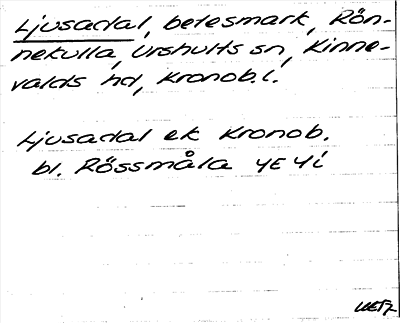 Ljusadal, betesmark, Rön-
nekulla, Urshults sn, Kinne-
valds hd, Kronob. l.
Ljusadal ek Kronob.
bl. Rössmåla 4E4i